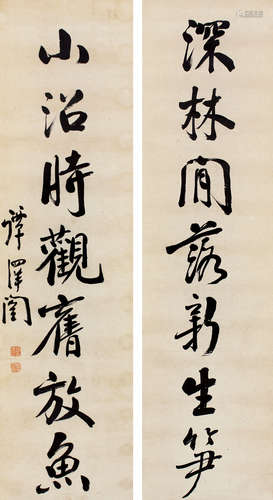 深林閒新生笋
小沼時觀舊放魚
譚澤闓